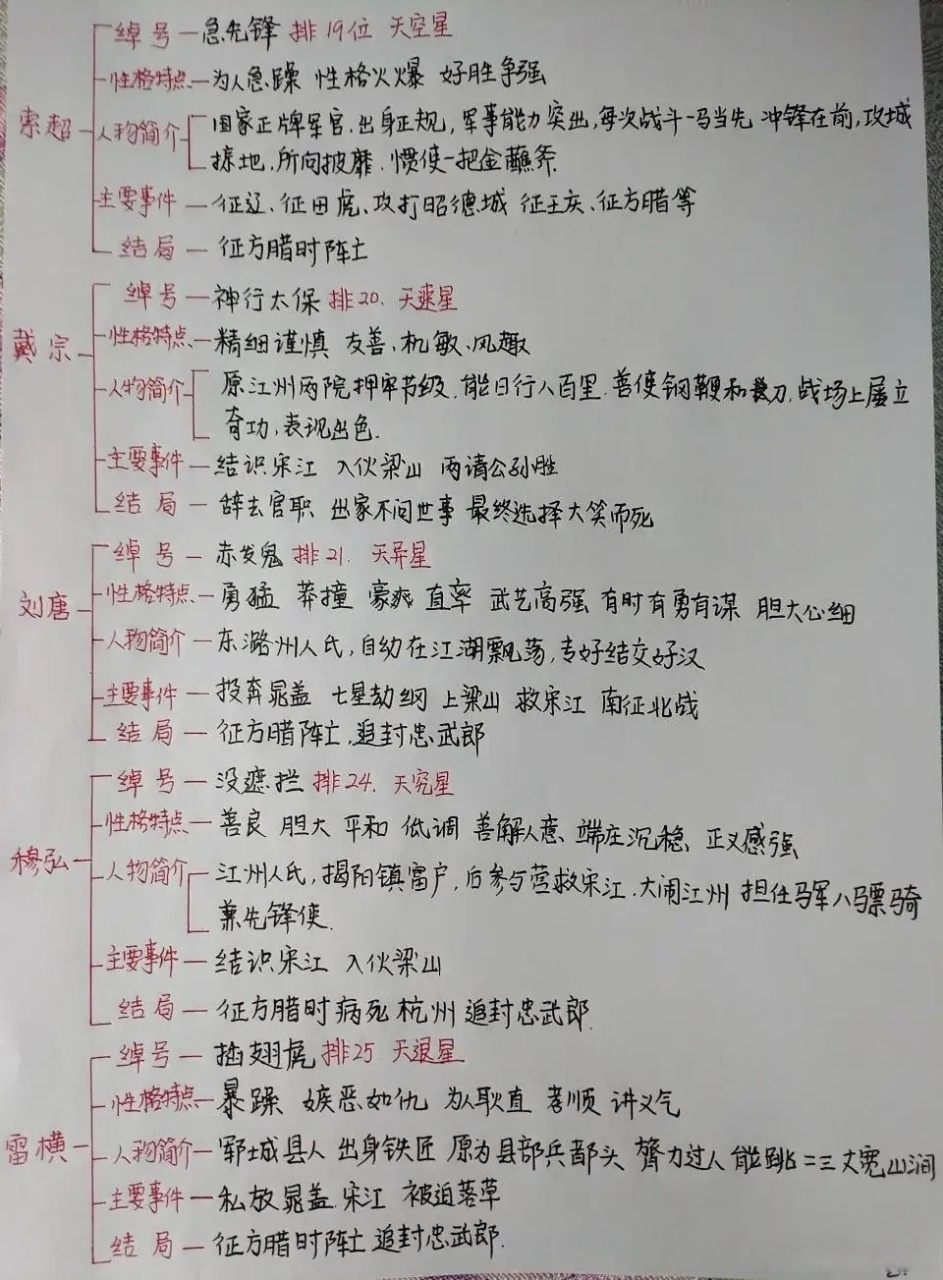 绰号 — 急先锋 排19位 天空星
性格特点 — 为人急躁 性格火爆 好胜争强
索超 人物简介 国家正牌军官,出身正规,军事能力突出,每次战斗一马当先 冲锋在前,攻城
掠地,所向披靡.惯使一把金蘸斧.
主要事件 — 征辽、征田虎、攻打昭德城 征王庆、征方腊等
结局 — 征方腊时阵亡
绰号 — 神行太保 排20. 天速星
戴宗 性格特点 — 精细谨慎 友善、机敏、风趣
人物简介 原江州两院押牢节级.能日行八百里.善使钢鞭和长刀,战场上屡立
奇功,表现出色.
主要事件 — 结识宋江 入伙梁山 两请公孙胜
结局 — 辞去官职 出家不问世事 最终选择大笑而死
绰号 — 赤发鬼 排21. 天异星
刘唐 性格特点 — 勇猛 莽撞 豪爽 直率 武艺高强 有时有勇有谋 胆大心细
人物简介 — 东潞州人氏,自幼在江湖飘荡,专好结交好汉
主要事件 — 投奔晁盖 七星劫纲 上梁山 救宋江 南征北战
结局 — 征方腊阵亡,追封忠武郎
绰号 — 没遮拦 排24. 天究星
性格特点 — 善良 胆大 平和 低调 善解人意、端庄沉稳、正义感强
穆弘 人物简介 江州人氏,揭阳镇富户,后参与营救宋江.大闹江州 担任马军八骠骑
兼先锋使.
主要事件 — 结识宋江 入伙梁山
结局 — 征方腊时病死杭州 追封忠武郎.
绰号 — 插翅虎 排25 天退星
性格特点 — 暴躁 嫉恶如仇 为人耿直 孝顺 讲义气
雷横 人物简介 — 郓城县人 出身铁匠 原为县部兵都头 膂力过人 能跳二三丈宽山涧
主要事件 — 私放晁盖.宋江 被迫落草
结局 — 征方腊时阵亡 追封忠武郎.